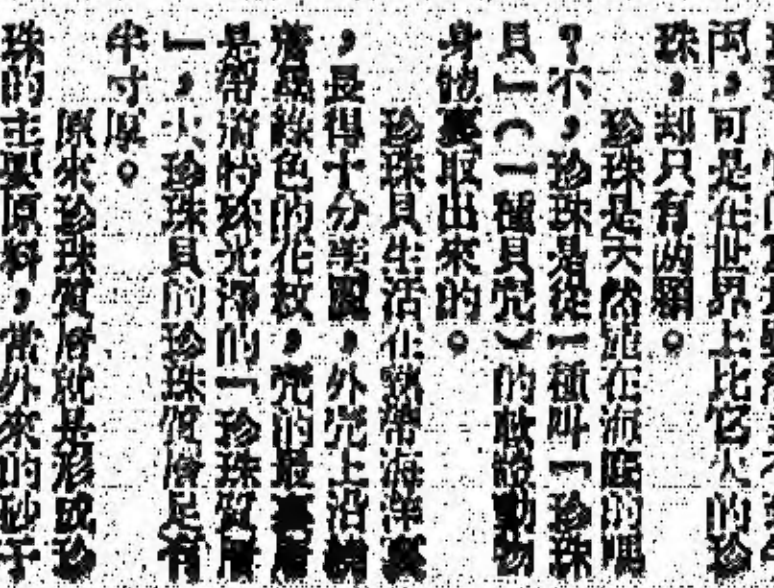 丙，可是在世界上比它大的珍
珠，却只有两顆。
珍珠是天然就在海底的嗎
？不，珍珠是從一種叫「珍珠
貝」（一種貝壳）的軟體動物
身體裏取出來的。
珍珠貝生活在熱帶海洋裏
，長得十分半圓，外壳上沿
綠色的花紋，壳的最裏層
是帶着特殊光澤的「珍珠質層
」，大珍珠貝的珍珠質層足有
半寸厚。
原來珍珠質層就是形成珍
珠的主要原料，當外來的砂子